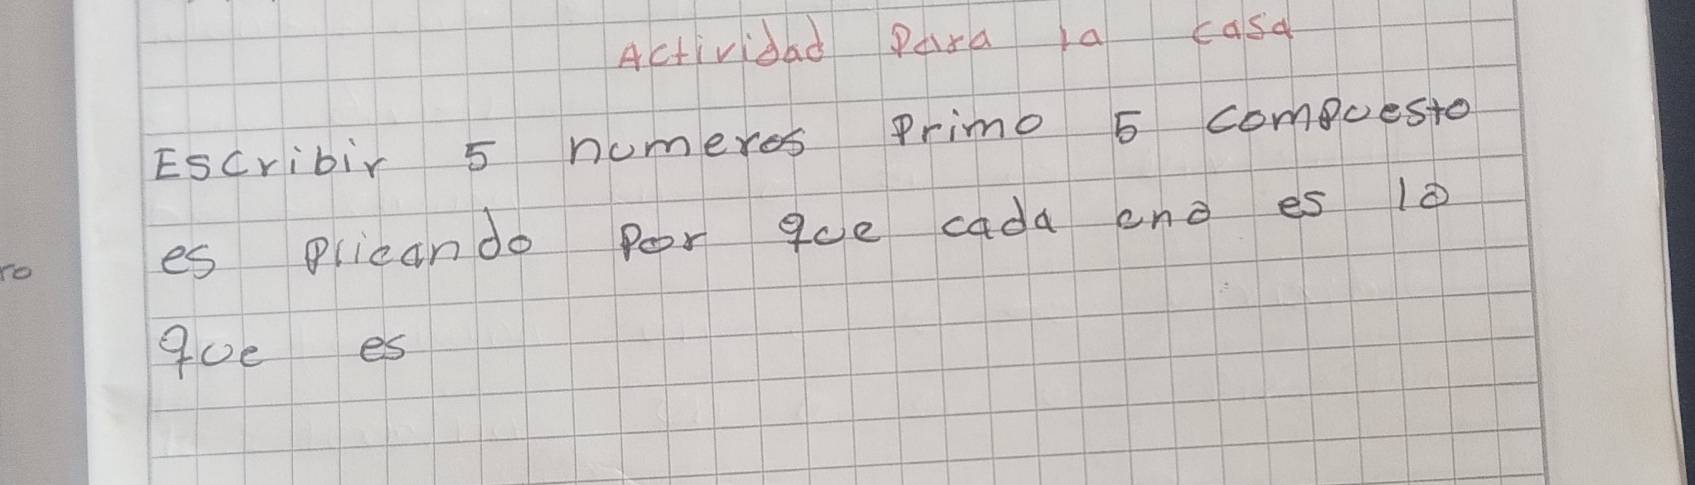 Actividad Para la casa
Escribir 5 numeros Primo 5 compuesto
es plicando Por que cada uno es lo
que es
ro